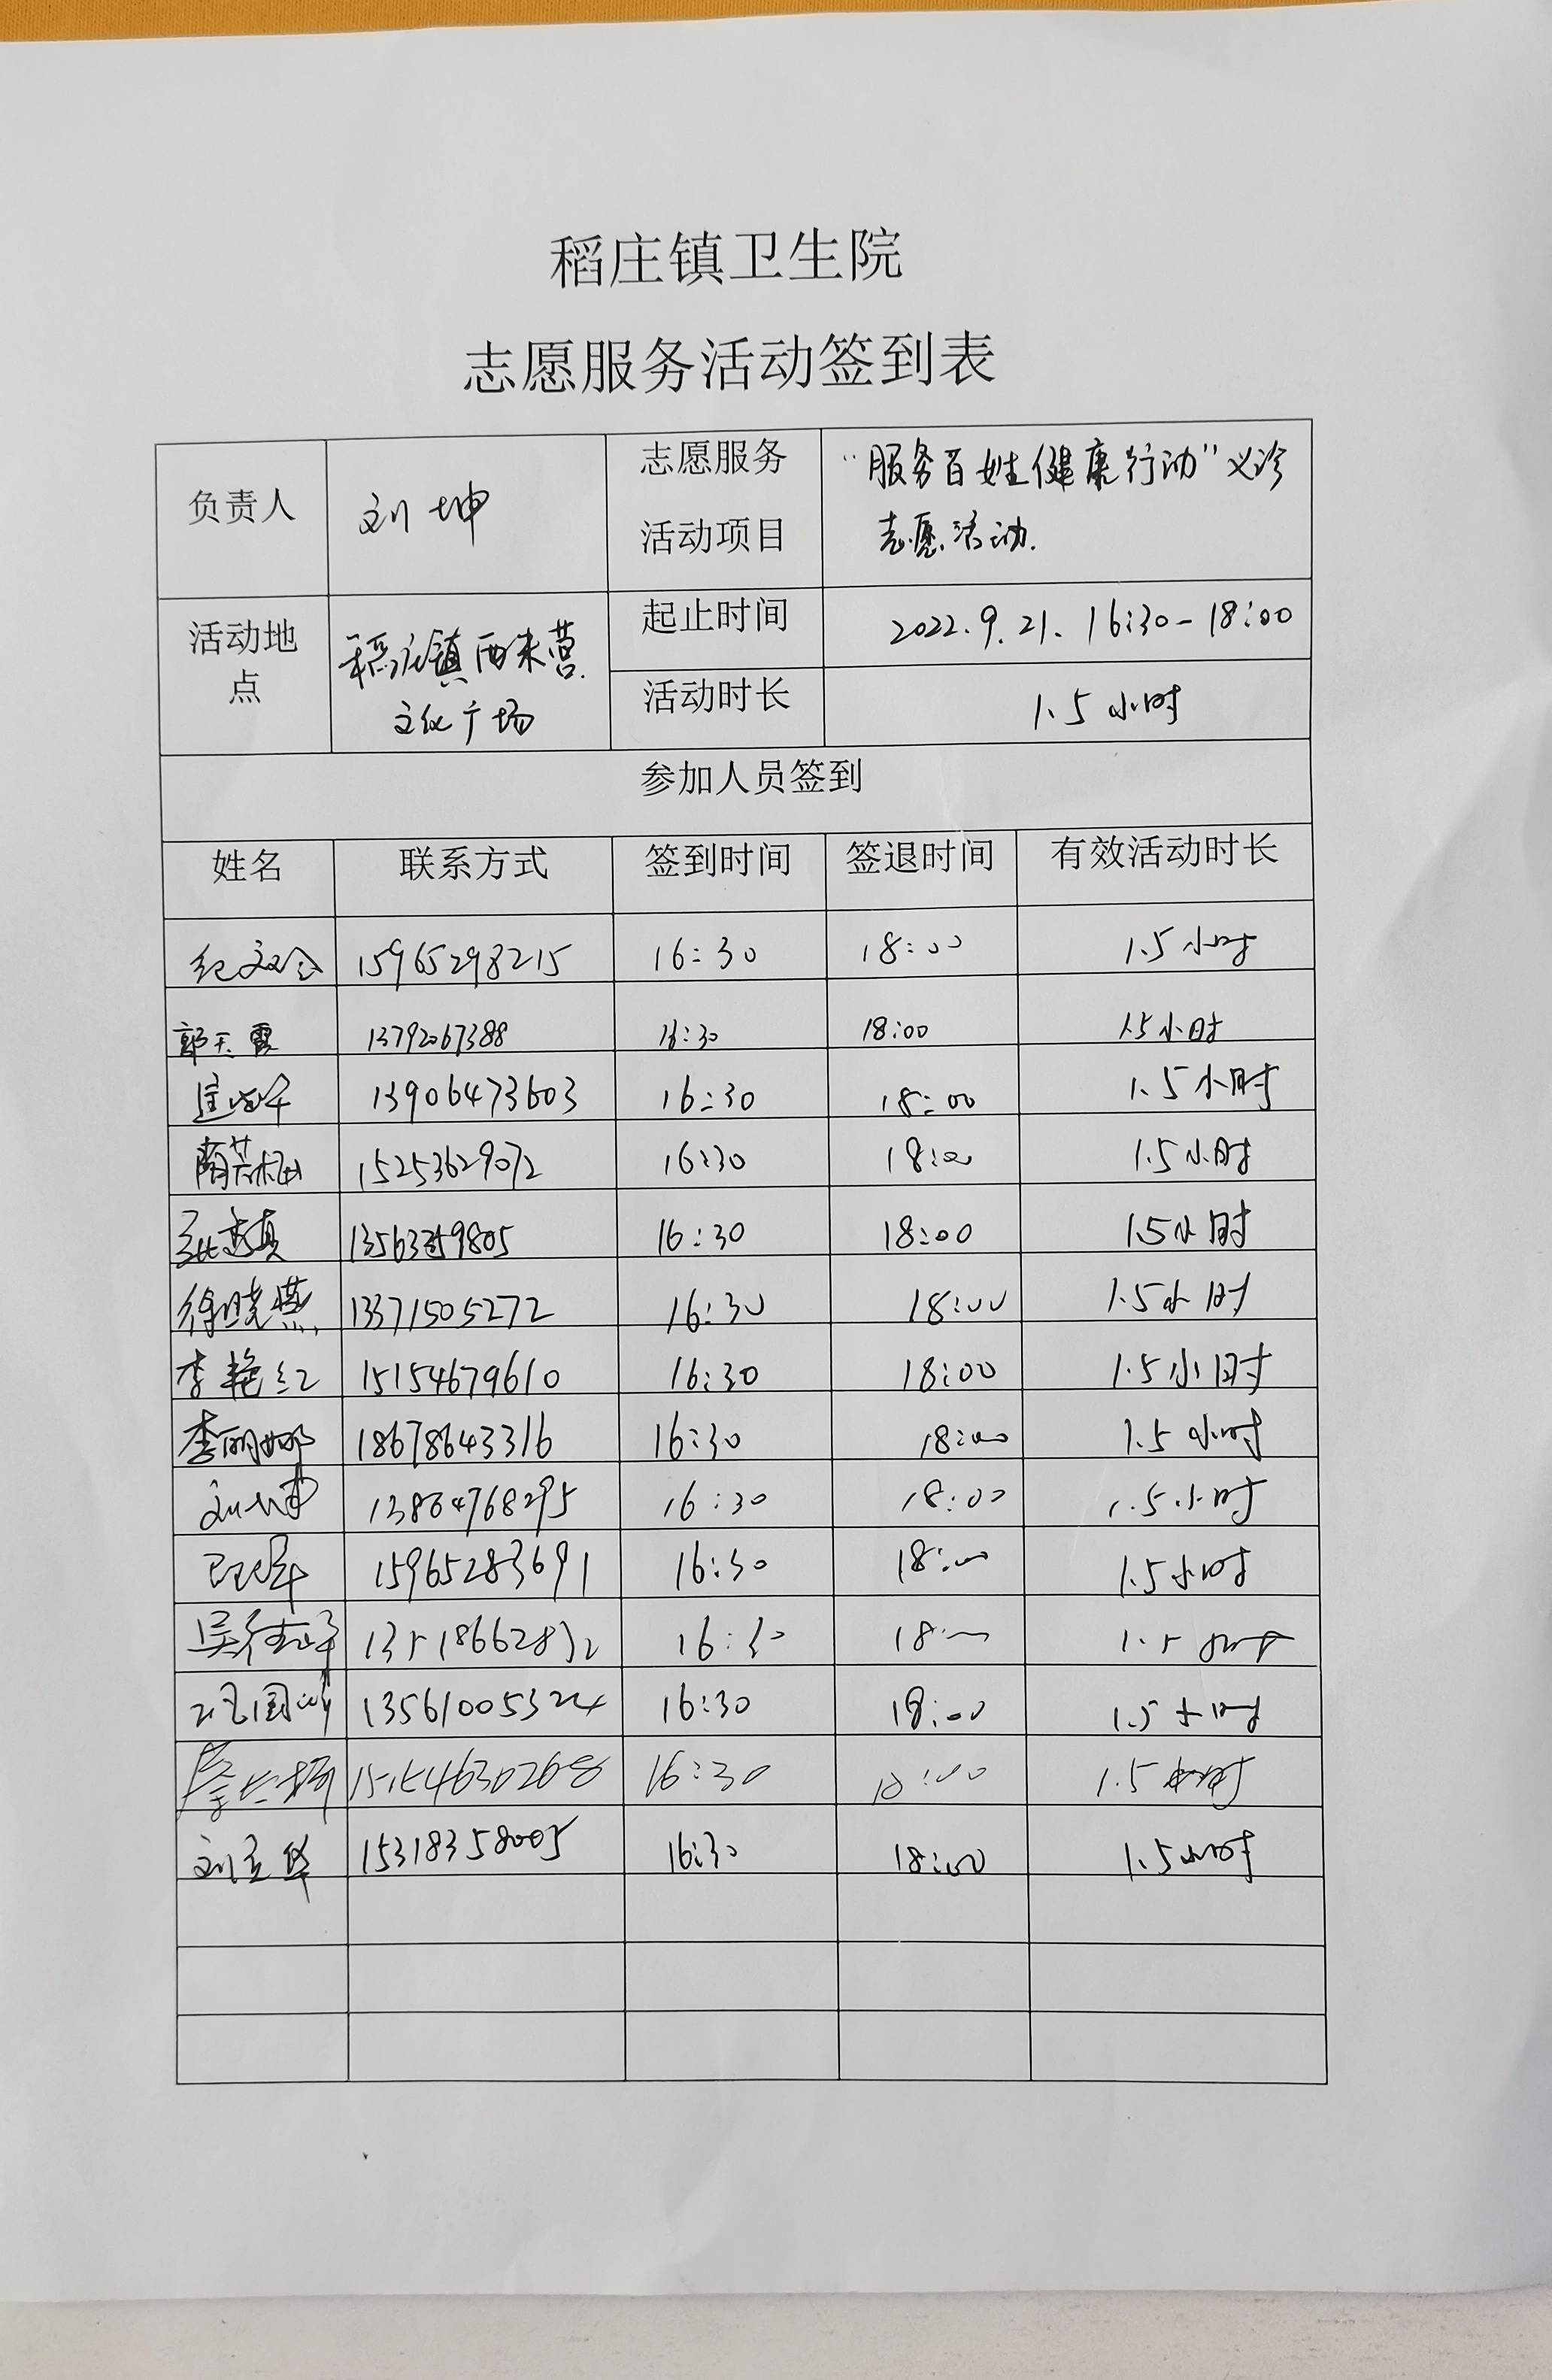 稻庄镇卫生院
志愿服务活动签到表
负责人 刘坤 志愿服务活动项目 "服务百姓健康行动"义诊
志愿活动.
活动地点 稻庄镇西来营
文化广场
起止时间 2022.9.21. 16:30-18:00
活动时长 1.5小时
参加人员签到
姓名 联系方式 签到时间 签退时间 有效活动时长
15965298215 16:30 18:00 1.5小时
郭天霞 13792067388 16:30 18:00 1.5小时
13906473603 16:30 18:00 1.5小时
15253629072 16:30 18:00 1.5小时
16:30 18:00 1.5小时
徐晓燕 13371505272 16:30 18:00 1.5小时
李艳红 15154679610 16:30 18:00 1.5小时
李丽娜 18678643316 16:30 18:00 1.5小时
刘坤 13864768295 16:30 18:00 1.5小时
15965283691 16:30 18:00 1.5小时
16:30 18:00 1.5小时
13561005324 16:30 18:00 1.5小时
15154630268 16:30 18:00 1.5小时
15318358005 16:30 18:00 1.5小时